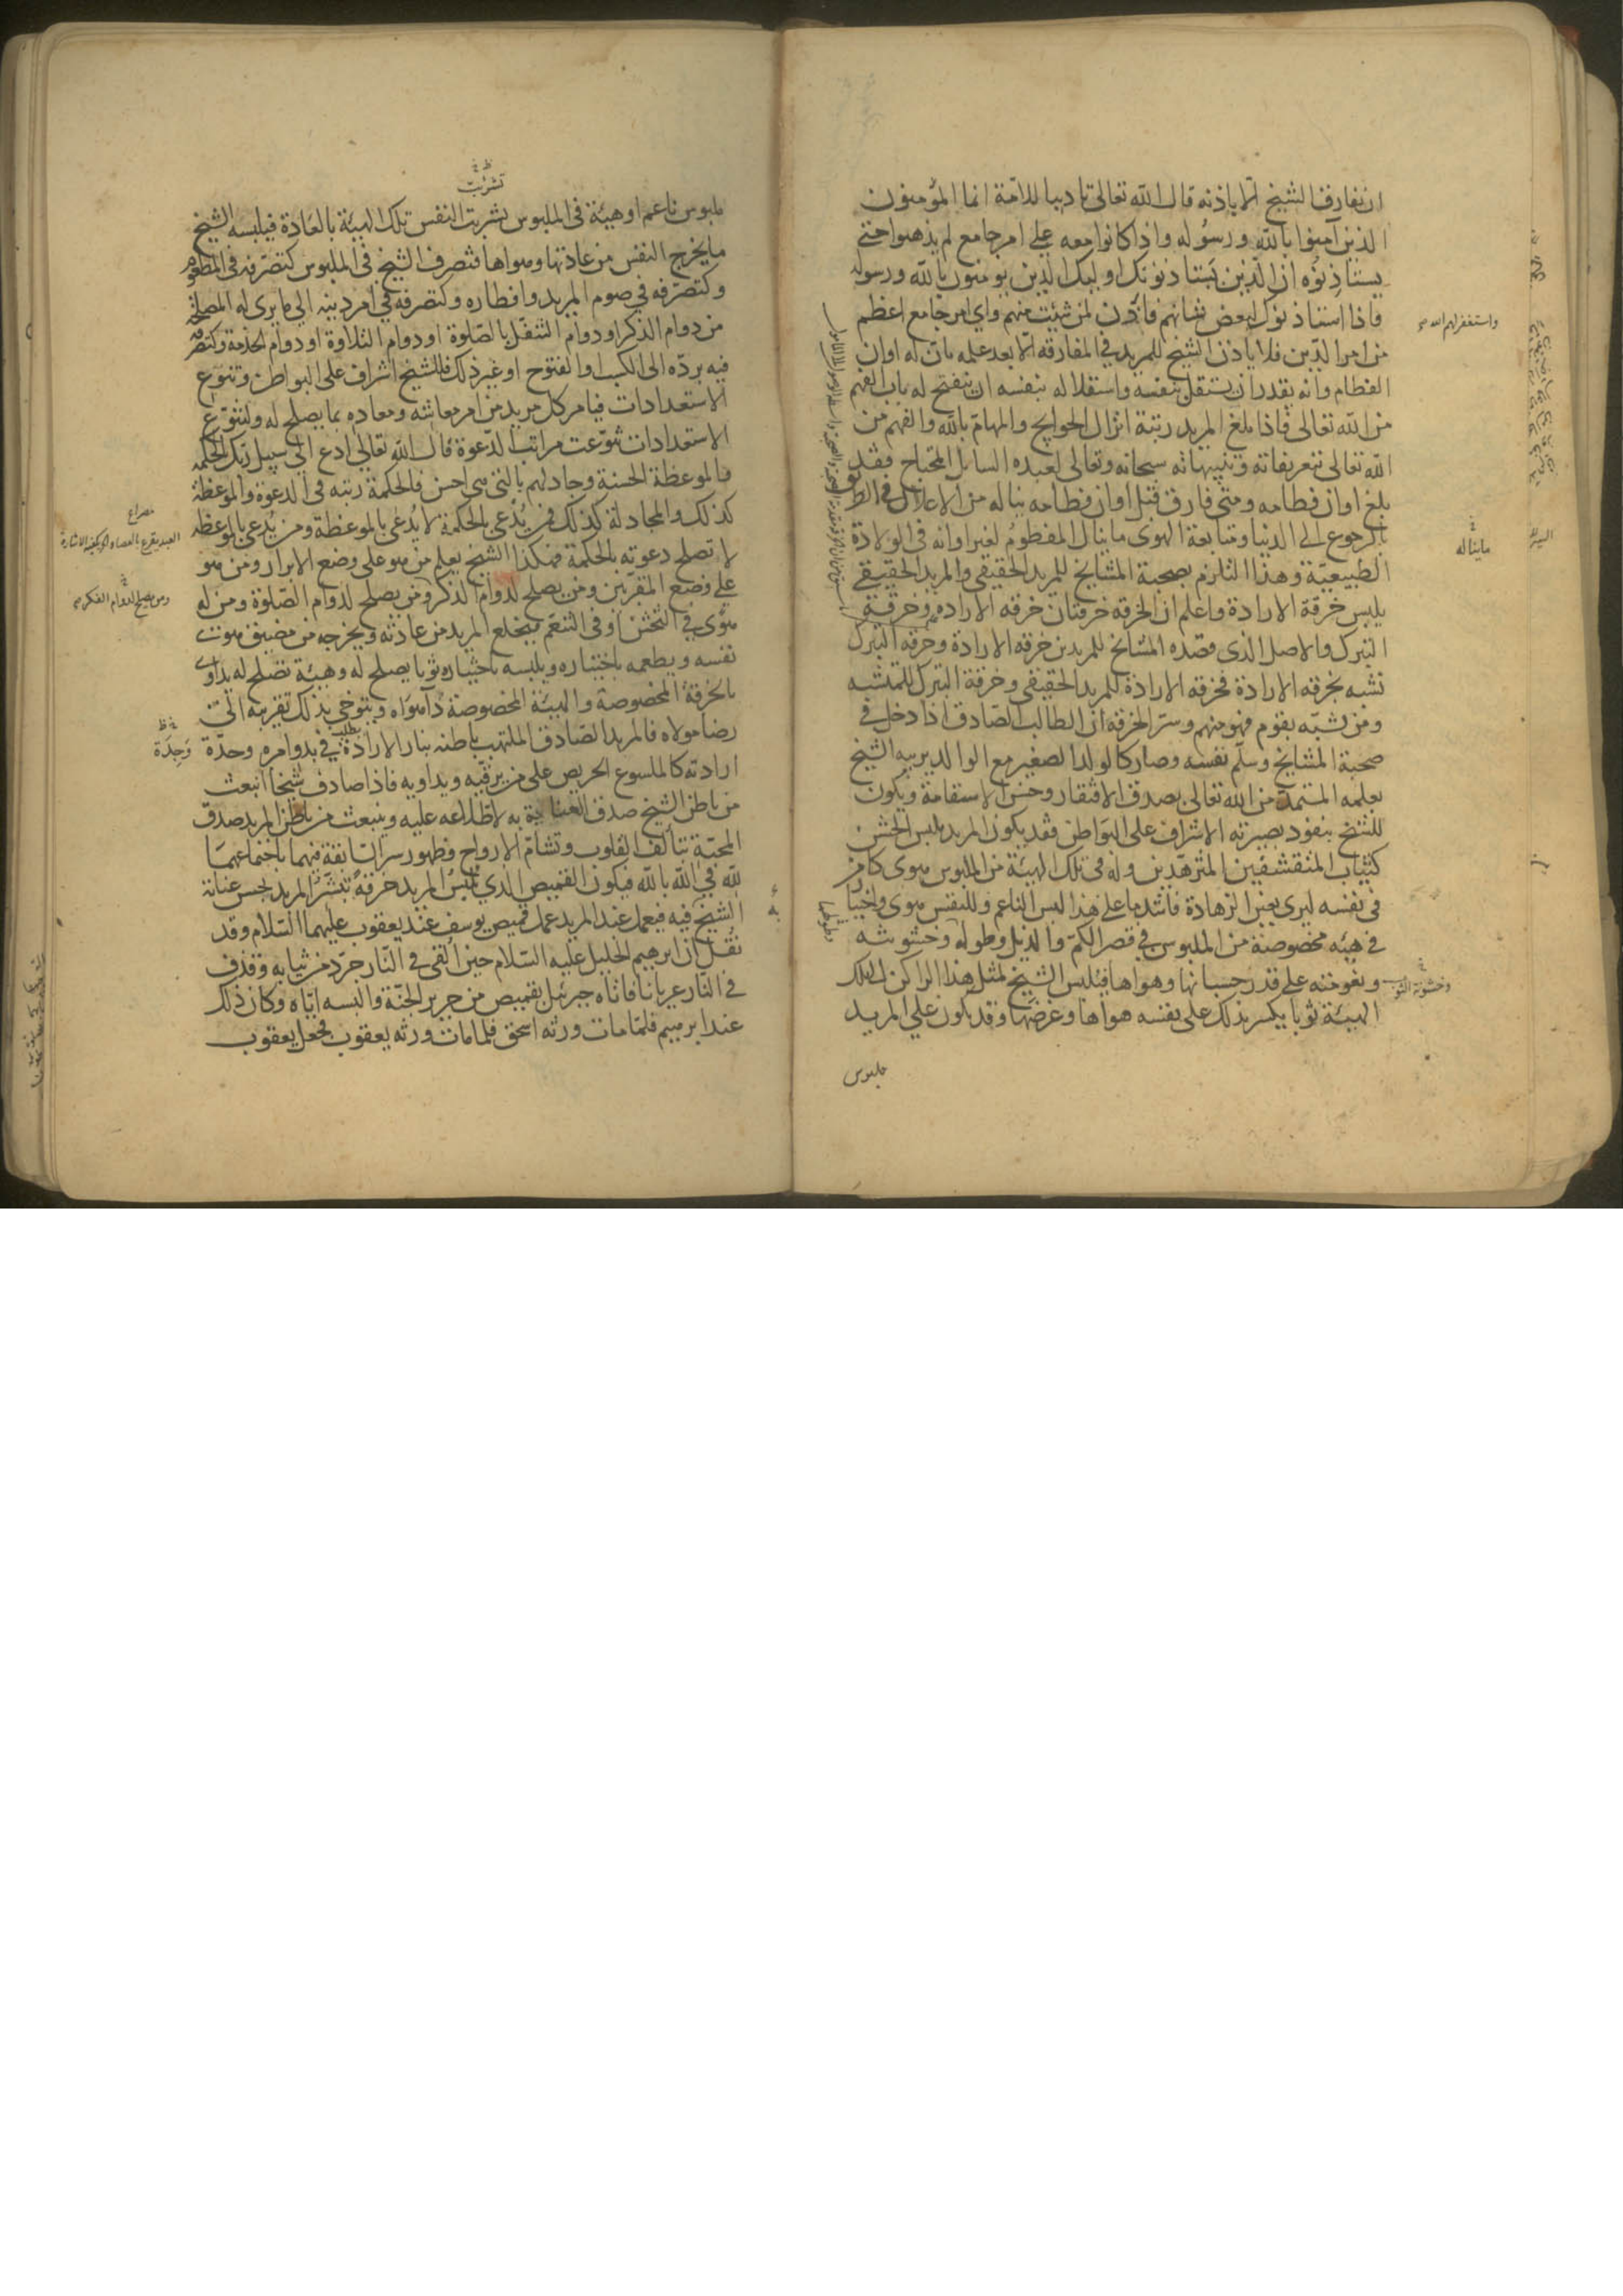 ان يفارق الشيخ الا باذنه قال الله تعالى تاديبا للامة انما المؤمنون
الذين آمنوا بالله ورسوله واذا كانوا معه على امر جامع لم يذهبوا حتى
يستاذنوه ان الذين يستاذنونك اوليك الذين يومنون بالله ورسوله
فاذا استاذنوك لبعض شانهم فاذن لمن شئت منهم واي امر جامع اعظم
واستغفر لهم الله
من امر الدين فلا ياذن الشيخ للمريد في المفارقة الا بعد علمه بان له اوان
الفطام وانه يقدر ان يستقل بنفسه واستقلاله بنفسه ان ينفتح له باب الفهم
من الله تعالى فاذا بلغ المريد رتبة انزال الحوايج والمهام بالله والفهم من
الله تعالى بتعريفاته وتنبيهاته سبحانه وتعالى لعبده السايل المحتاج فقد
بلغ اوان فطامه ومتى فارق قبل اوان فطامه يناله من الاعلال في الطريق
بالرجوع الى الدنيا ومتابعة الهوى ما ينال المفطوم لغير اوانه في الولادة
ما يناله
الطبيعية وهذا التلازم بصحبة المشايخ للمريد الحقيقي والمريد الحقيقي
يلبس خرقة الارادة واعلم ان الخرقة خرقتان خرقة الارادة وخرقة
التبرك والاصل الذي قصده المشايخ للمريدين خرقة الارادة وخرقة التبرك
تشبه بخرقة الارادة فخرقة الارادة للمريد الحقيقي وخرقة التبرك للمتشبه
ومن تشبه بقوم فهو منهم وسر الخرقة ان الطالب الصادق اذا دخل في
صحبة المشايخ وسلم نفسه وصار كالولد الصغير مع الوالد يربيه الشيخ
بعلمه المستمد من الله تعالى بصدق الافتقار وحسن الاستقامة ويكون
للشيخ بنفوذ بصيرته الاشراف على البواطن فقد يكون المريد يلبس الخشن
كثياب المتقشفين المتزهدين وله في تلك الهيئة من الملبوس هوى كامن
في نفسه ليرى بعين الزهادة فاشد ما عليه هذا لبس الناعم وللنفس هوى واختيار
في هيئة مخصوصة من الملبوس في قصر الكم والذيل وطوله وخشونته
ونعومته على قدر حسبانها وهواها فيلبس الشيخ لمثل هذا الراكن لتلك
وخشونة الثوب
الهيئة ثوبا يكسر بذلك على نفسه هواها وغرضها وقد يكون على المريد
ملبوس
تشربت
ملبوس ناعم او هيئة في الملبوس تشربت النفس تلك الهيئة بالعادة فيلبسه الشيخ
ما يخرج النفس من عادتها وهواها فتصرف الشيخ في الملبوس كتصرفه في المطعوم
وكتصرفه في صوم المريد وافطاره وكتصرفه في امر دينه الى ما يرى له المصلحة
من دوام الذكر او دوام التنفل بالصلوة او دوام التلاوة او دوام الخدمة وكتصرفه
فيه برده الى الكسب او الفتوح او غير ذلك فللشيخ اشراف على البواطن وتنوع
الاستعدادات فيامر كل مريد من امر معاشه ومعاده بما يصلح له ولتنوع
الاستعدادات تنوعت مراتب الدعوة قال الله تعالى ادع الى سبيل ربك بالحكمة
والموعظة الحسنة وجادلهم بالتي هي احسن فالحكمة رتبة في الدعوة والموعظة
كذلك والمجادلة كذلك فمن يدعى بالحكمة لا يدعى بالموعظة ومن يدعى بالموعظة
مصراع
العبد يقرع بالعصا والحر يكفيه الاشارة
لا تصلح دعوته بالحكمة فهكذا الشيخ يعلم من هو على وضع الابرار ومن هو
على وضع المقربين ومن يصلح لدوام الذكر ومن يصلح لدوام الصلوة ومن له
ومن يصلح لدوام الفكر
هوى في التخشن او في التنعم فيخلع المريد من عادته ويخرجه من مضيق هوى
نفسه ويطعمه باختياره ويلبسه باختياره ثوبا يصلح له وهيئة تصلح له يداوي
بالخرقة المخصوصة والهيئة المخصوصة داء هواه ويتوخى بذلك تقريبه الى
رضا مولاه فالمريد الصادق الملتهب باطنه بنار الارادة في بدو امره وحدة
وحدة
ارادته كالملسوع الحريص على من يرقيه ويداويه فاذا صادف شيخا انبعث
من باطن الشيخ صدق العناية به لاطلاعه عليه وينبعث من باطن المريد صدق
المحبة بتألف القلوب وتشام الارواح وظهور سر السابقة فيهما باجتماعهما
لله في الله بالله فيكون القميص الذي يلبس المريد خرقة تبشر المريد بحسن عناية
الشيخ فيه فيعمل عند المريد عمل قميص يوسف عند يعقوب عليهما السلام وقد
نقل ان ابرهيم الخليل عليه السلام حين القى في النار جرد من ثيابه وقذف
في النار عريانا فاتاه جبرئيل بقميص من حرير الجنة والبسه اياه وكان ذلك
عند ابرهيم فلما مات ورثه اسحق فلما مات ورثه يعقوب فجعل يعقوب